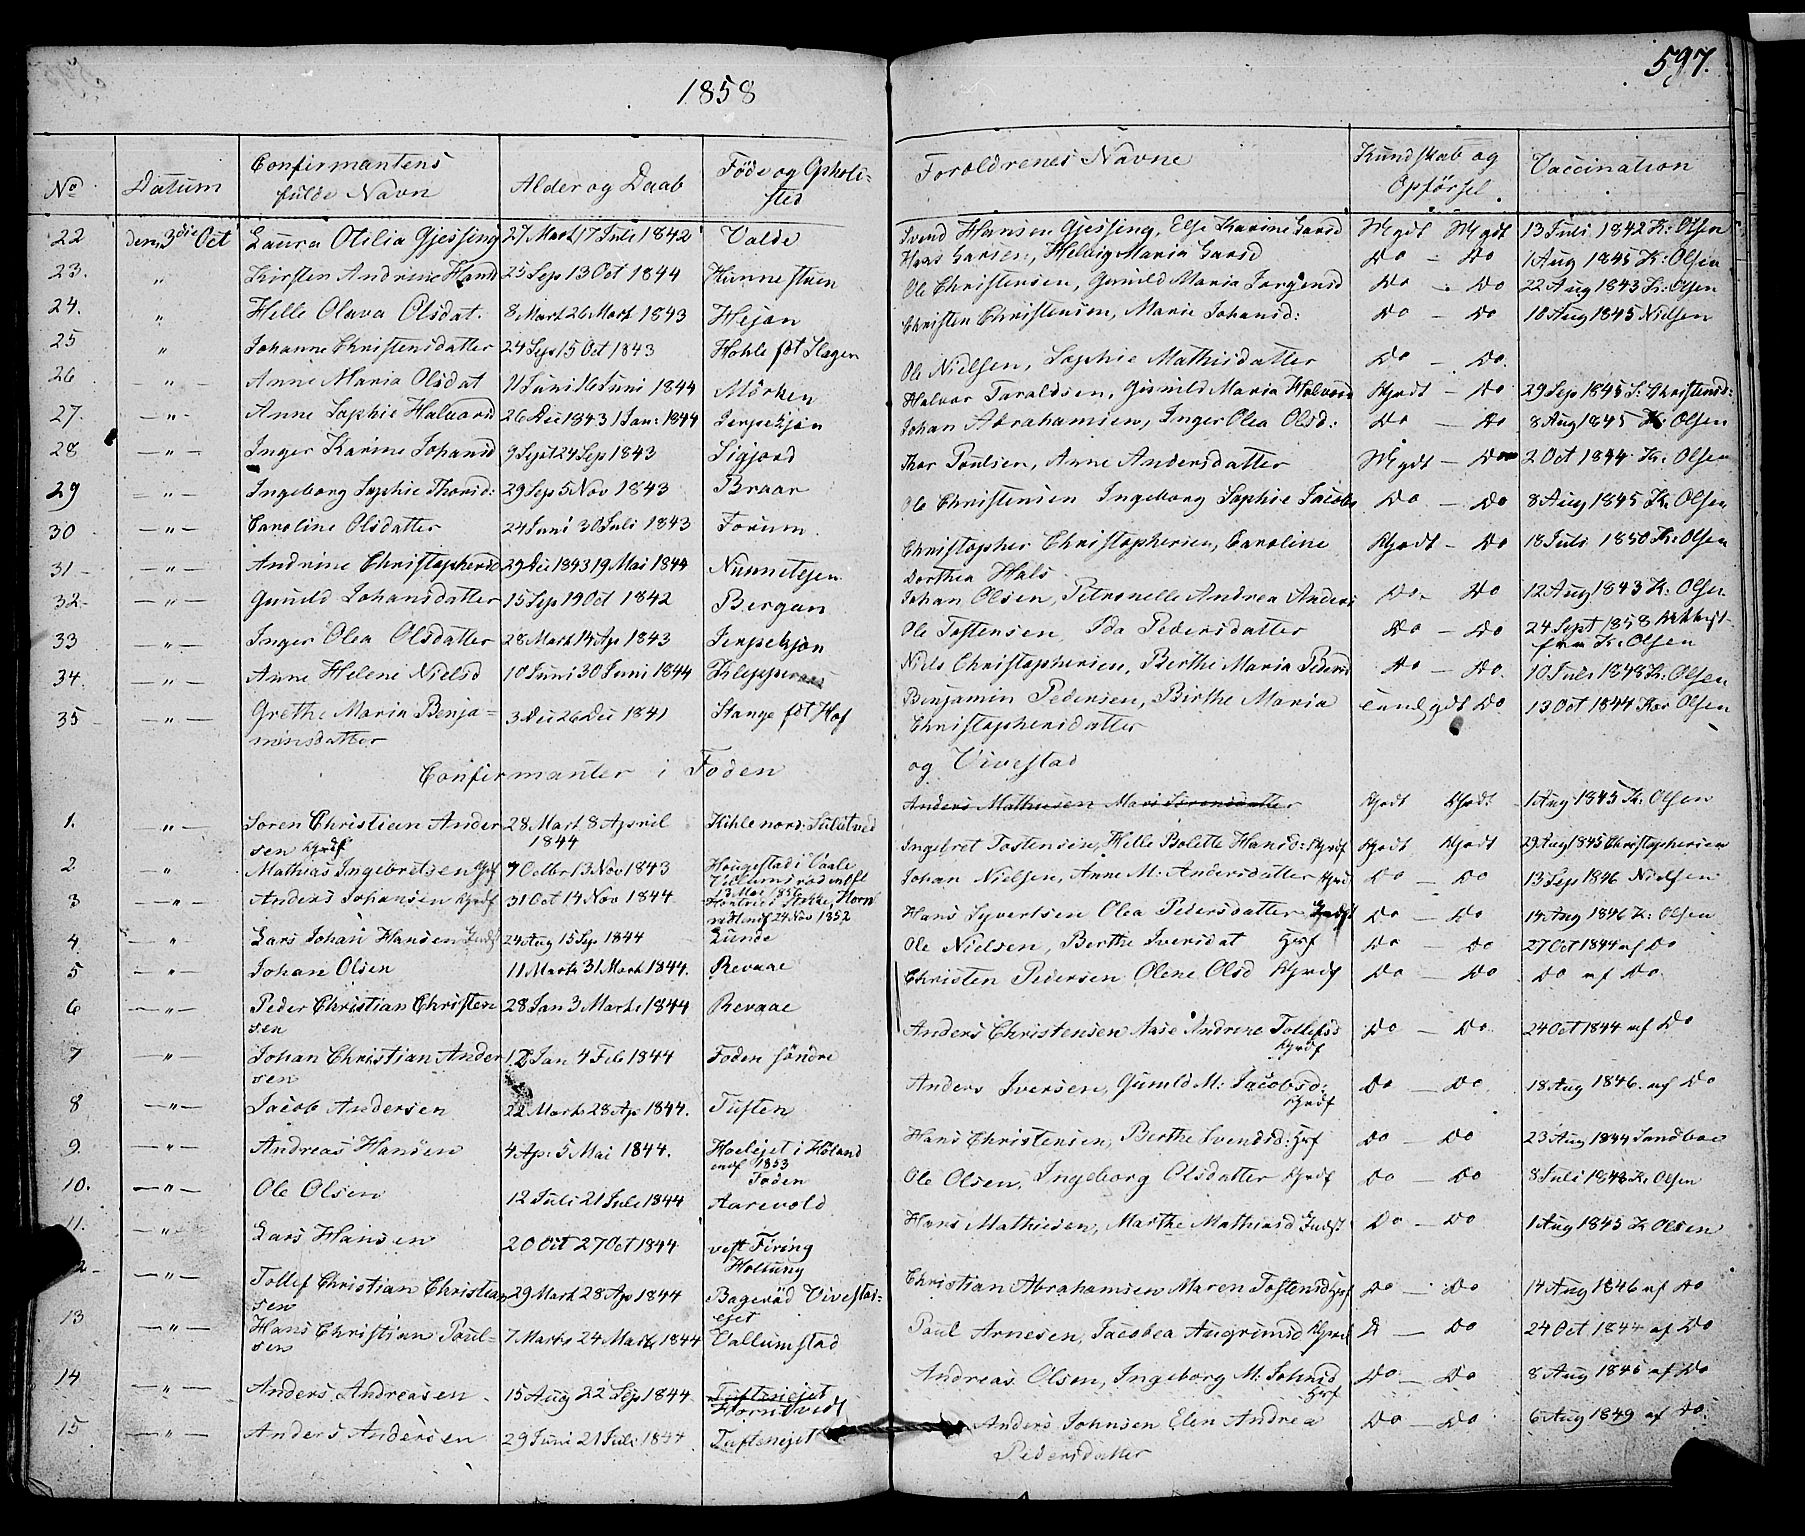 597.
1858
No Datum Confirmantens fulde Navn Alder og Daab Føde og Opholdsted Forældrenes Navne Kundskab og Opførsel Vaccination
22 den 3die Oct Laura Otilia Gjessing 27 Mart 17 Juli 1842 Valde Svend Hansen Gjessing, Else Karine Larsd Mgdt Mgdt 13 Juli 1842 K: Olsen
23. " Kirsten Andrine Hansd 25 Sep 13 Oct 1844 Hunnestuen Hans Larsen, Helvig Maria Larsd Do - Do 1 Aug 1845 K: Olsen
24. " Helle Olava Olsdat. 8 Mart 26 Mart 1843 Hejan Ole Christensen, Gunild Maria Jørgensd Do - Do 22 Aug 1843 K: Olsen
25 " Johanne Christensdatter 24 Sep 15 Oct 1843 Hohle fdt Slagen Christen Christensen, Marie Johansd: Do - Do 18 Aug 1845 Nielsen
26 - " - Anne Maria Olsdat 11 Juni 16 Juni 1844 Mørken Ole Nielsen, Sophie Mathisdatter Do - Do.
27. - " - Anne Sophie Halvorsd 26 Dec 1843 1 Jan: 1844 Jerpekjøn Halvor Taraldsen, Gunild Maria Halvorsd Kgodt - Do 29 Sep 1845 S: Christensd:
28 - " - Inger Karine Johansd 9 Sept 24 Sep 1843 Sigjord Johan Abrahamsen, Inger Olea Olsd: Do - Do 8 Aug 1845 K: Olsen
29 - " - Ingeborg Sophie Thorsd: 29 Sep 5 Nov 1843 Braar Thor Poulsen, Anne Andersdatter Mgdt - Do 2 Oct 1844 K: Olsen
30 - " - Caroline Olsdatter 24 Juni 30 Juli 1843 Forum. Ole Christensen Ingeborg Sophie Jacobs Do - Do 8 Aug 1845 K: Olsen
31 - " - Andrine Christophersd 29 Dec 1843 19 Mai 1844 Nunnetejen Christopher Christophersen, Caroline Dorthea Hals Kgodt - Do 18 Juli 1850 K: Olsen
32 - " - Gunild Johansdatter 15 Sep 19 Oct 1842 Bergan Johan Olsen, Petronelle Andrea Anders Do. Do 12 Aug 1843 K. Olsen
33 - " - Inger Olea Olsdatter 28 Mart 14 Ap 1843 Jerpekjøn Ole Toftensen, Ida Pedersdatter Do - Do 24 Sept 1858 fra K: Olsen
34. - " - Anne Helene Nielsd 10 Juni 30 Juni 1844 Klepperaas Niels Christophersen, Berthe Maria Pedersd Do - Do. 10 Juli 1848 K: Olsen
35 - " - Grethe Maria Benjaminsdatter 3 Dec 26 Dec 1841 Stange fdt Hof Benjamin Pedersen, Birthe Maria Christophersdatter Do. 13 Oct 1844 Olsen
Confirmanter i Foden og Vivestad
1. - " - Søren Christian Andersen 28 Mart 8 April 1844 Kihle nord: Anders Mathiesen Mari Sørensdatter Kgodt Kgodt 1 Aug 1845 K. Olsen
2 " Mathias Ingebretsen 7 Octbr 13 Nov 1843 Haugestad i Vaale 13 Mai 1856 Ingebret Tostensen, Helle Bolette Hansd: Kgodt Kgodt 29 Aug 1845 Christophersen
3 - " - Anders Johansen 31 Oct 14 Nov 1844 24 Nov 1852 Johan Nielsen, Anne M: Andersdatter Do - Do 13 Sep 1846 Nielsen
4. - " Lars Johan Hansen 24 Aug 15 Sep 1844 Lunde Hans Syvertsen Olea Pedersdatter Do - Do 14 Aug 1846 K: Olsen
5 - " - Johan Olsen 11 Mart 31 Mart 1844. Revaae Ole Nielsen, Berthe Iversdat Do - Do 27 Oct 1844 af Do
6 - " - Peder Christian Christensen 28 Jan 3 Marts 1844 Revaae Christen Pedersen Olene Olsd Do - Do Do af Do.
7 - " - Johan Christian Andersen 12 Jan 4 Feb 1844 Foden søndre Anders Christensen Aase Andrine Tollefsd Do - Do. 24 Oct 1844 af Do
8 - " - Jacob Andersen 22 Marts 28 Ap 1844. Tuften Anders Iversen, Gunild M: Jacobsd: Do - Do. 18 Aug 1846. af Do
9. - " - Andreas Hansen 4 Ap: 5 Mai 1844. Hoelejet i Høland 1853 Foden Hans Christensen, Berthe Svendsd: Do - Do 23 Aug 1844 Sandboe
10. - " - Ole Olsen 12 Juli 21 Juli 1844 Aarevold Ole Olsen, Ingeborg Olsdatter Do - Do 8 Juli 1848 K. Olsen
11. - " - Lars Hansen 20 Oct 27 Oct 1844 vest Firing Holtung Hans Mathiesen, Marthe Mathiasd Do - Do 1 Aug 1845 K Olsen
12 - " - Tollef Christian Christiansen 29 Mart 28 Ap 1844 Bagerød Vivestad-ejet Christian Abrahamsen Maren Tostensd Do - Do 14 Aug 1846 af Do
13 - " - Hans Christian Poulsen 7 Marts 24 Marts 1844 Vallumstad Poul Arnesen, Jacobea Augrimsd D - Do 24 Oct 1844 af Do
14 - " - Anders Andreasen 15 Aug 22 Sep 1844 Tuftenejet Hornstvedt Andreas Olsen, Ingeborg M: Johnsd Do - Do 8 Aug 1845 af Do
15 - " - Anders Andersen 29 Juni 21 Juli 1844 Tuftenejet Anders Johnsen Elen Andrea Pedersdatter Do - Do 6 Aug 1849 af Do.